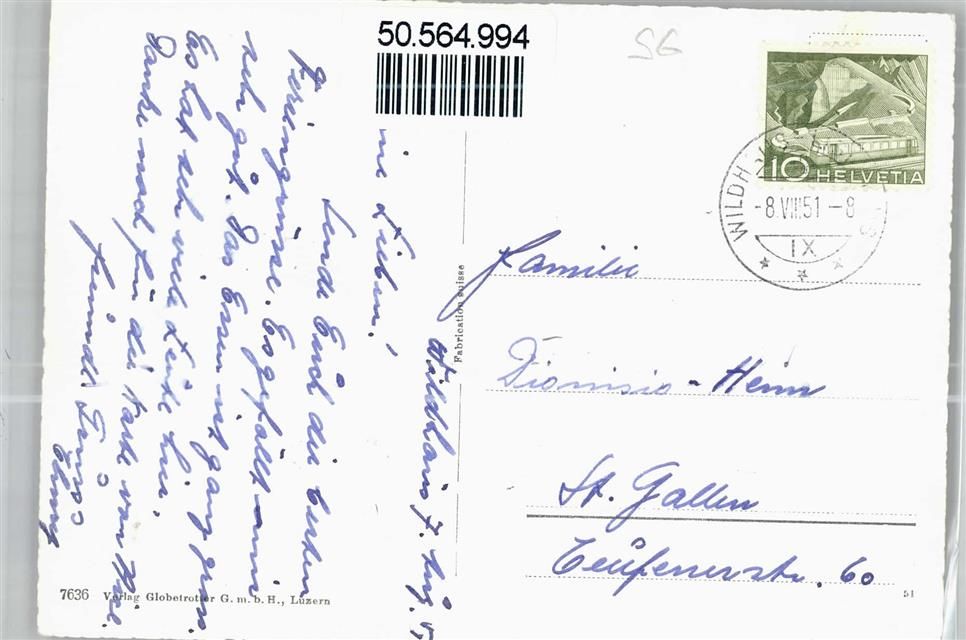 50.564.994
SG
10 HELVETIA
WILDHAUS
-8.VIII.51-8
IX
Wildhaus 7. Aug. 5
Lieben!
Sende Euch die besten
Feriengrüsse. Es gefällt mir
sehr gut. Das Essen ist ganz gross.
Es hat sehr viele Leute hier.
Danke noch für die Karte von
freundl. Gruss
Familie
Dionisio - Heim
St. Gallen
Teufenerstr. 60
Fabrication suisse
7636 Verlag Globetrotter G. m. b. H., Luzern
51